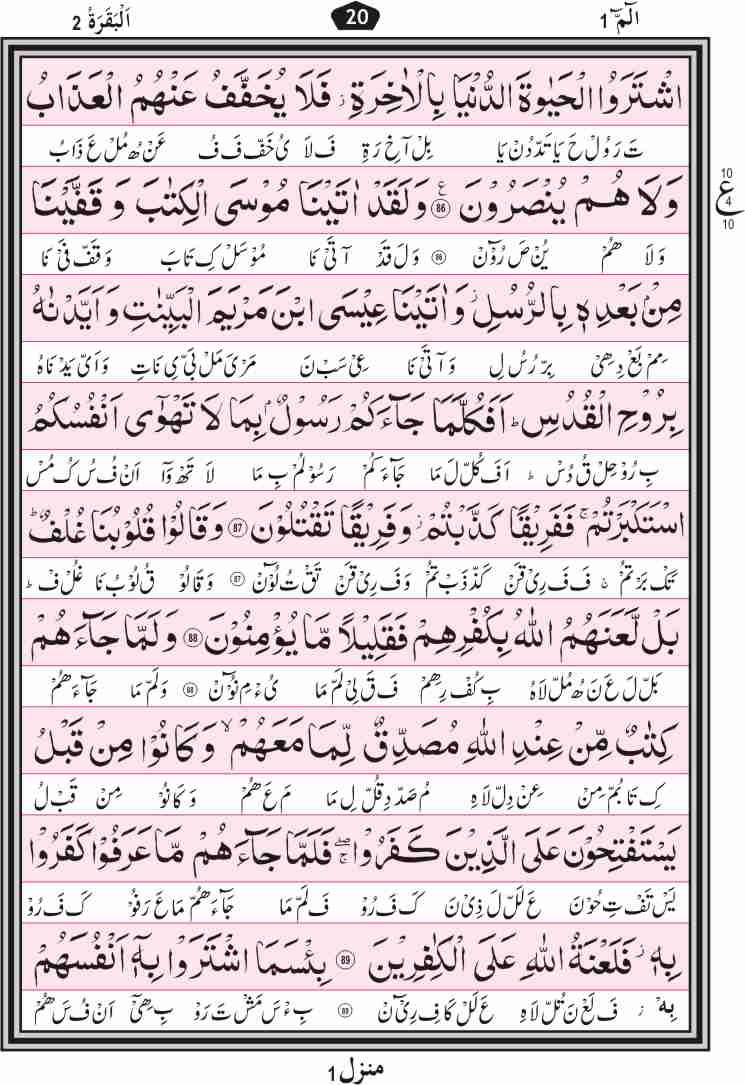 الٓمّٓ 1 20 اَلْبَقَرَةُ 2
اشْتَرَوُا الْحَيٰوةَ الدُّنْيَا بِالْاٰخِرَةِ ز فَلَا يُخَفَّفُ عَنْهُمُ الْعَذَابُ
تَ رَوُلْ حَ يَا تَدّ دُنْ يَا بِلْ آخِ رَةِ فَ لَا يُ خَفّ فَ فُ عَنْ هُ مُلْ عَ ذَابُ
وَلَا هُمْ يُنْصَرُوْنَ ع 86 وَلَقَدْ اٰتَيْنَا مُوْسَى الْكِتٰبَ وَ قَفَّيْنَا
10
ع
4
10
وَ لَا هُمْ يُنْ صَ رُوْٓنْ 86 وَ لَ قَدْ آ تَيْ نَا مُوْ سَلْ كِ تَابَ وَ قَفّ فَيْ نَا
مِنْۢ بَعْدِهٖ بِالرُّسُلِ ز وَاٰتَيْنَا عِيْسَى ابْنَ مَرْيَمَ الْبَيِّنٰتِ وَاَيَّدْنٰهُ
مِمْ بَعْ دِهِيْ بِرّ رُسُ لِ وَ آ تَيْ نَا عِيْ سَبْ نَ مَرْ يَ مَلْ بَيّ يِ نَاتِ وَ اَيّ يَدْ نَاهُ
بِرُوْحِ الْقُدُسِ ط اَفَكُلَّمَا جَآءَكُمْ رَسُوْلٌۢ بِمَا لَا تَهْوٰٓى اَنْفُسُكُمُ
بِ رُوْ حِلْ قُ دُسْ ط اَ فَ كُلّ لَ مَا جَآءَ كُمْ رَسُوْ لُمْ بِ مَا لَا تَهْ وَآ اَنْ فُ سُ كُ مُسْ
اسْتَكْبَرْتُمْ ج فَفَرِيْقًا كَذَّبْتُمْ ز وَفَرِيْقًا تَقْتُلُوْنَ 87 وَقَالُوْا قُلُوْبُنَا غُلْفٌ ط
تَكْ بَرْ تُمْ ج فَ فَ رِيْ قَنْ كَذّ ذَبْ تُمْ وَ فَ رِيْ قَنْ تَقْ تُ لُوْٓنْ 87 وَ قَا لُوْ قُ لُوْ بُ نَا غُلْ فْ ط
بَلْ لَّعَنَهُمُ اللهُ بِكُفْرِهِمْ فَقَلِيْلًا مَّا يُؤْمِنُوْنَ 88 وَلَمَّا جَآءَهُمْ
بَلّ لَ عَ نَ هُ مُلّ لَاهُ بِ كُفْ رِهِمْ فَ قَ لِيْ لَمّ مَا يُ ءْ مِ نُوْٓنْ 88 وَ لَمّ مَا جَآءَ هُمْ
كِتٰبٌ مِّنْ عِنْدِ اللهِ مُصَدِّقٌ لِّمَا مَعَهُمْ لا وَكَانُوْا مِنْ قَبْلُ
كِ تَا بُمّ مِنْ عِنْ دِلّ لَاهِ مُ صَدّ دِ قُلّ لِ مَا مَ عَ هُمْ وَ كَا نُوْ مِنْ قَبْ لُ
يَسْتَفْتِحُوْنَ عَلَى الَّذِيْنَ كَفَرُوْا ج صلے فَلَمَّا جَآءَهُمْ مَّا عَرَفُوْا كَفَرُوْا
يَسْ تَفْ تِ حُوْنَ عَ لَلّ لَ ذِيْ نَ كَ فَ رُوْ فَ لَمّ مَا جَآءَ هُمّ مَا عَ رَ فُوْ كَ فَ رُوْ
بِهٖ ز فَلَعْنَةُ اللهِ عَلَى الْكٰفِرِيْنَ 89 بِئْسَمَا اشْتَرَوْا بِهٖٓ اَنْفُسَهُمْ
بِهٖ ز فَ لَعْ نَ تُلّ لَاهِ عَ لَلْ كَا فِ رِيْٓ نْ 89 بِ ءْ سَ مَشْ تَ رَوْ بِ هِيْٓ اَنْ فُ سَ هُمْ
منزل 1